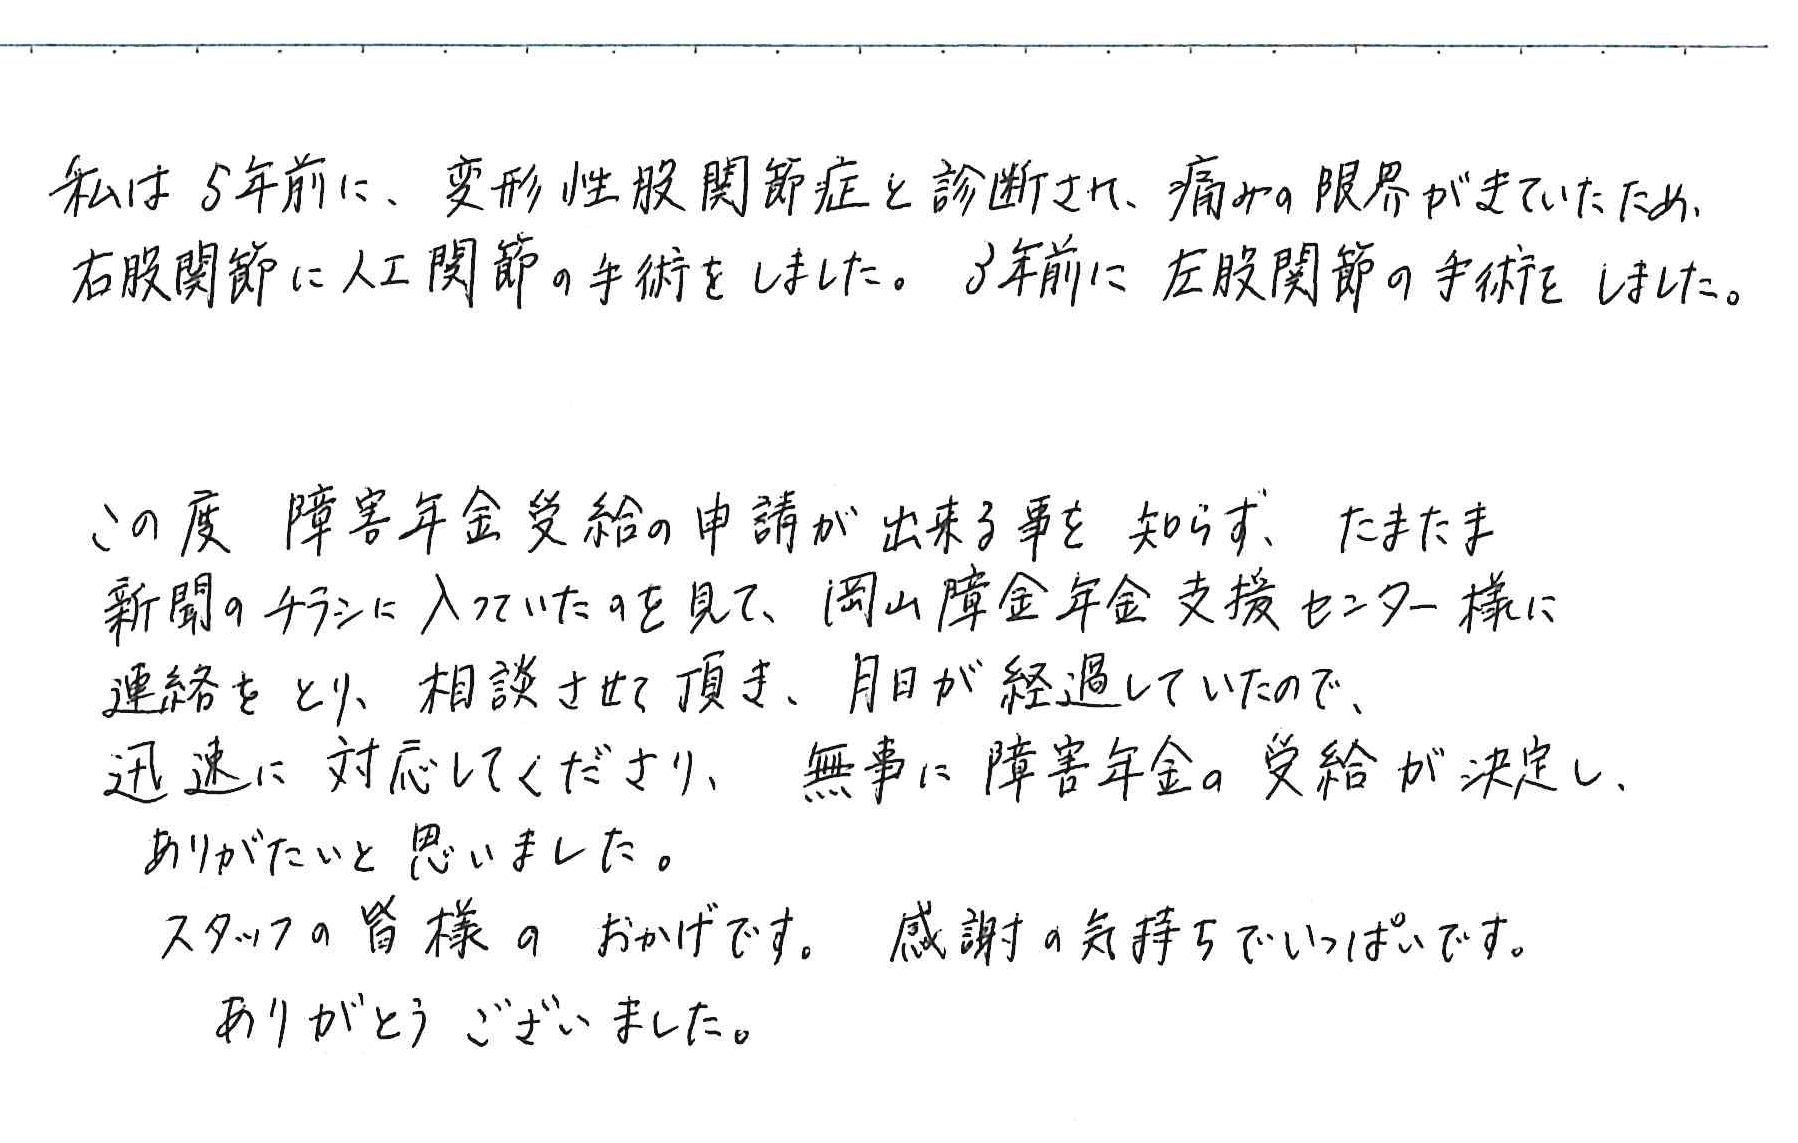 私は5年前に、変形性股関節症と診断され、痛みの限界がきていたため、
右股関節に人工関節の手術をしました。3年前に左股関節の手術をしました。
この度 障害年金受給の申請が出来る事を知らず、たまたま
新聞のチラシに入っていたのを見て、岡山障金年金支援センター様に
連絡をとり、相談させて頂き、月日が経過していたので、
迅速に対応してくださり、無事に障害年金の受給が決定し、
ありがたいと思いました。
スタッフの皆様のおかげです。感謝の気持ちでいっぱいです。
ありがとうございました。